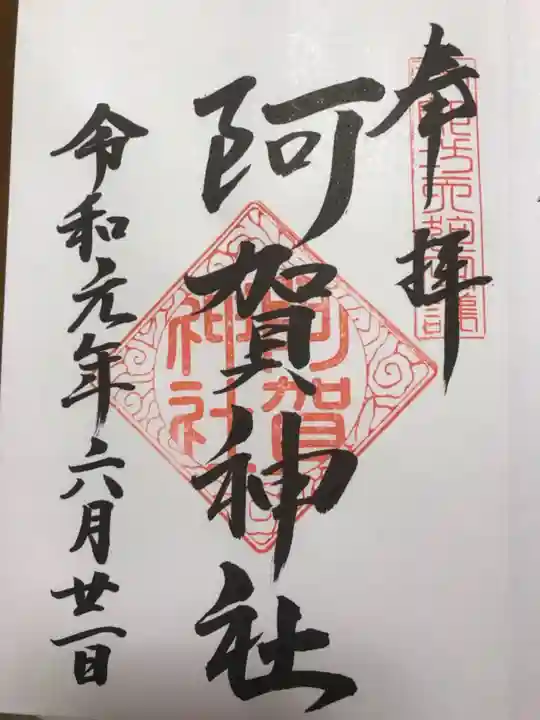 奉拝
阿賀神社
阿賀神社
令和元年六月廿一日